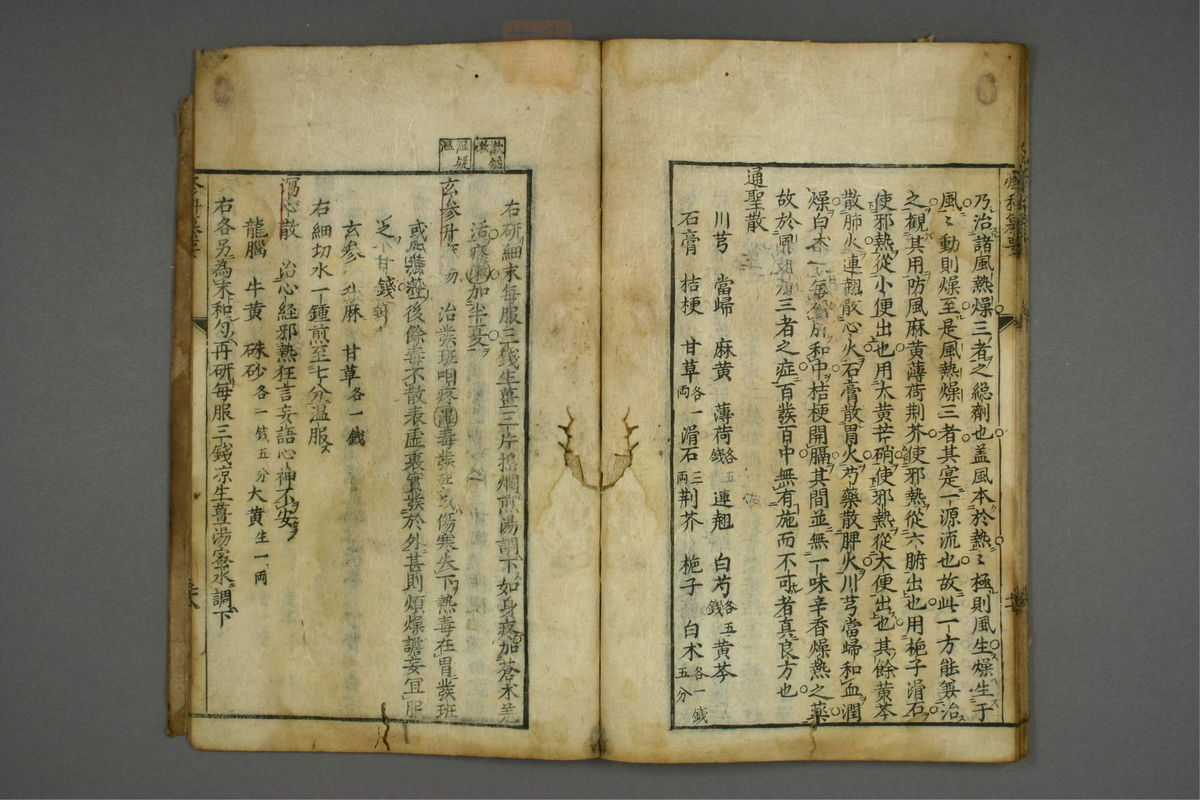 乃治諸風熱燥三者之総劑也盖風本於熱〻極則風生燥生于
風〻動則燥至是風熱燥三者其寔一源流也故此一方能兼治
之観其用防風麻黄薄荷荆芥使邪熱從六腑出也用梔子滑石
使邪熱從小便出也用大黄芒硝使邪熱從大便出也其餘黄芩
散肺火連翹散心火石膏散胃火芍藥散脾火川芎當帰和血潤
燥白朮和中桔梗開膈其間並無一味辛香燥熱之藥
故於風三者之症百發百中無有施而不可者真良方也
通聖散
川芎 當帰 麻黄 薄荷 連翹各五錢 白芍 黄芩各五錢
石膏 桔梗 甘草各一両 滑石三両 荆芥 梔子 白朮各一錢五分
右研細末每服三錢生薑三片搗爛煎湯調下如身疼加蒼朮羌
活痰嗽加半夏
玄参升 治發班咽疼傷寒失下熱毒在胃發班
後餘毒不散表虛裏實發於外甚則煩燥譫妄冝服
之
玄参 升麻 甘草各一錢
右細切水一鍾煎至七分温服
瀉心散 治心経邪熱狂言妄語心神不安
龍腦 牛黄 硃砂各一錢五分 大黄生一両
右各另為末和勻再研每服三錢凉生薑湯蜜水調下